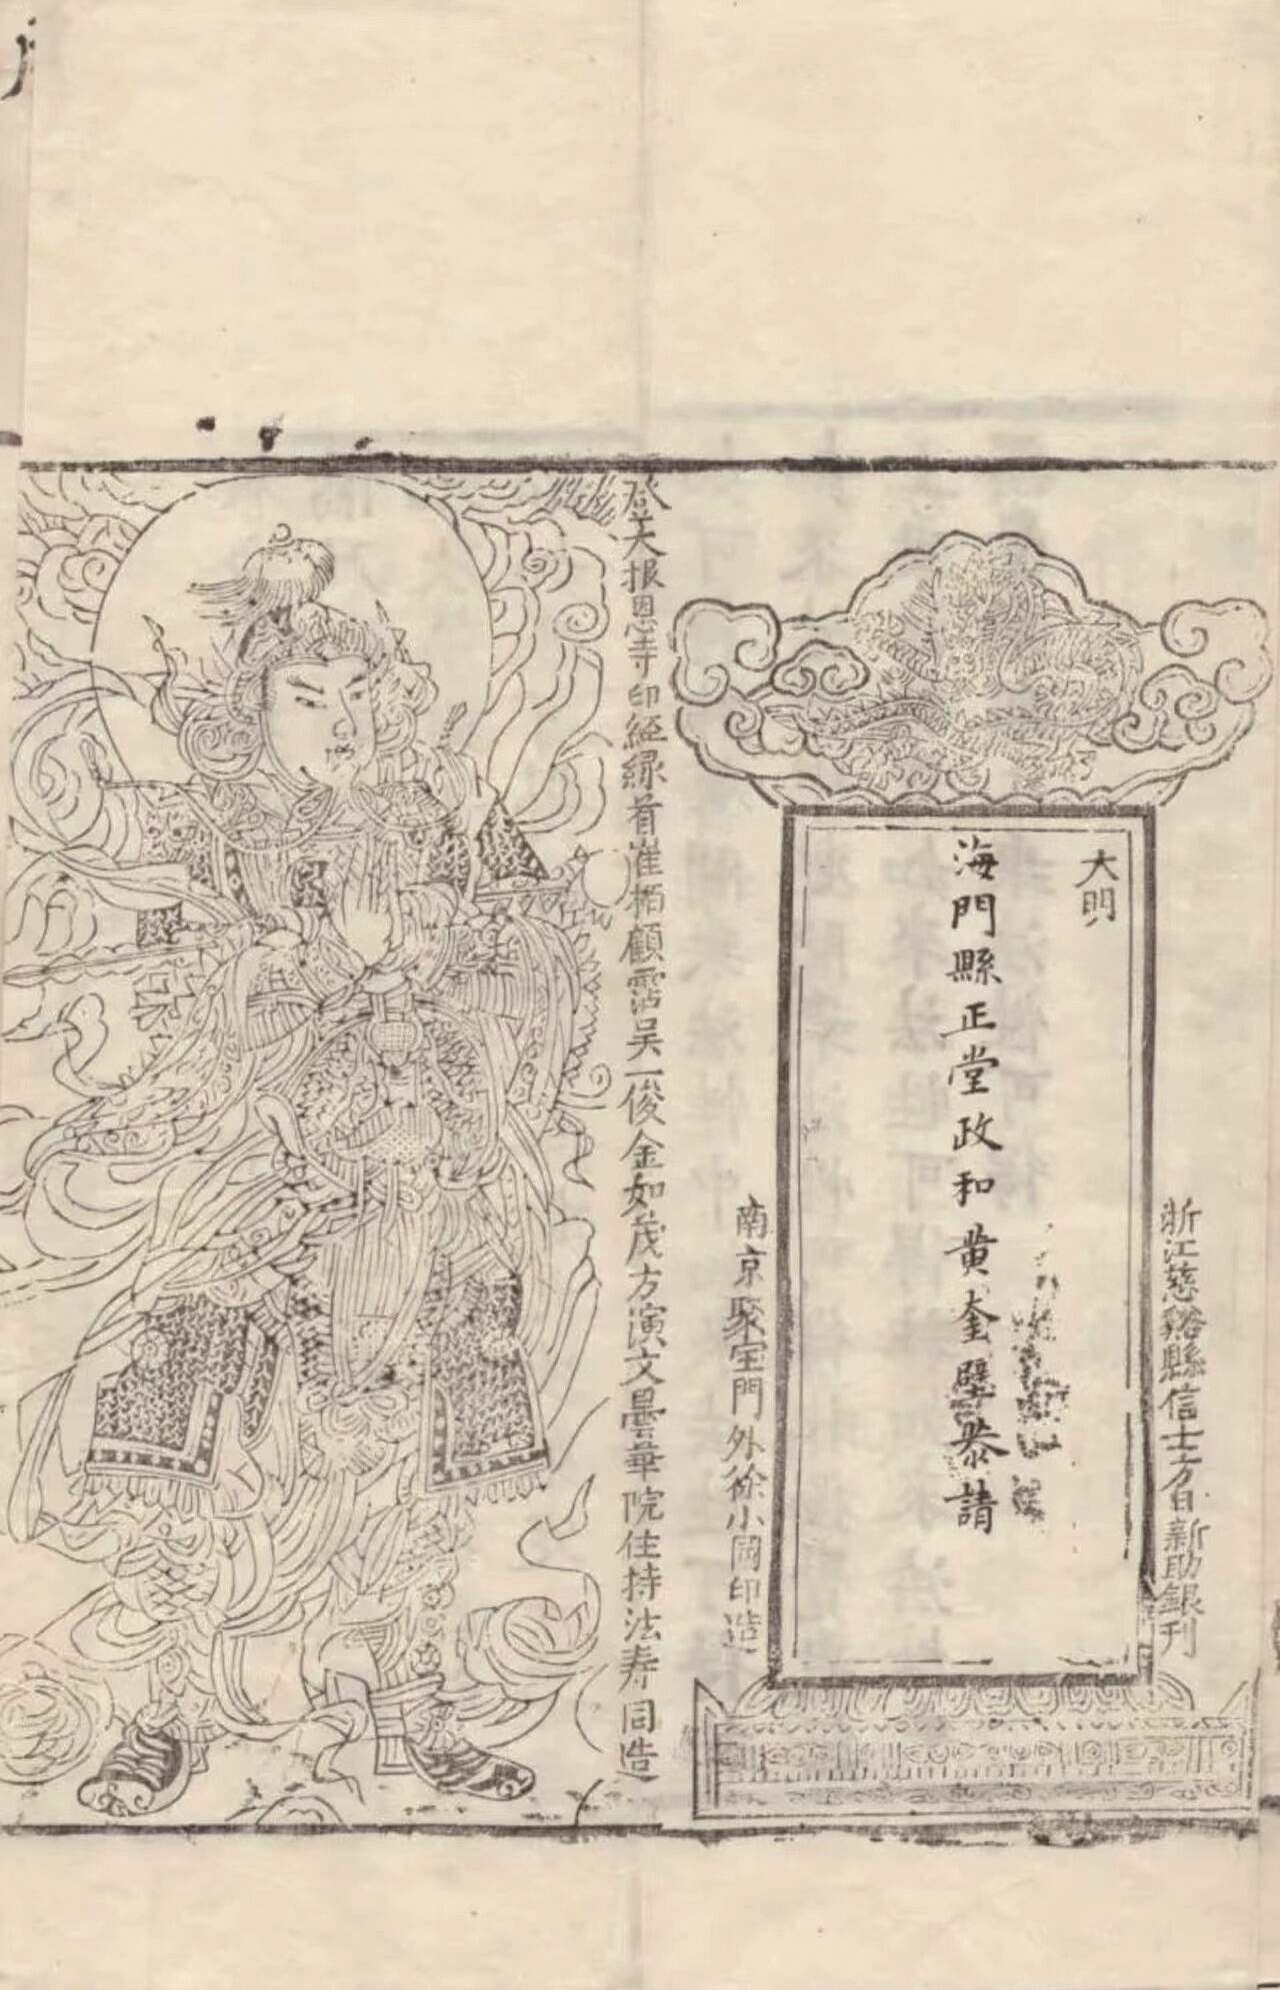 浙江慈谿縣信士方自新助銀刊
大明
海門縣正堂政和黄奎璧恭請
南京聚宝門外徐小岡印造
大報恩寺印經緣首崔栢顧霑吴一俊金如茂方演文曇華院住持法寿同造